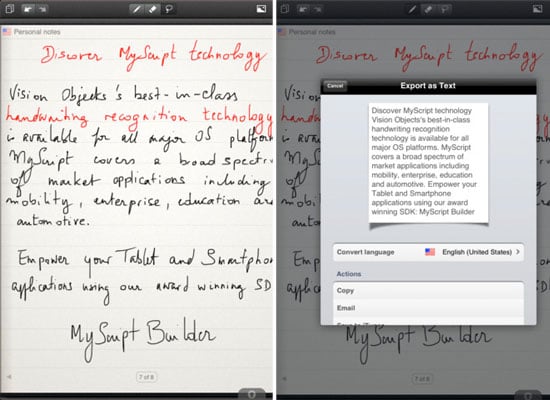 Personal notes
Discover MyScript technology
Vision Objects's best-in-class
handwriting recognition technology
is available for all major OS platform
MyScript covers a broad spectr
of market applications including
mobility, enterprise, education and
automotive.
Empower your Tablet and Smartphon
applications using our award winning SD
MyScript Builder
7 of 8
Personal notes
Discover MyScript technology
Cancel
Export as Text
Discover MyScript technology
Vision Objects's best-in-class
handwriting recognition
technology is available for all
major OS platforms. MyScript
covers a broad spectrum of
market applications including
mobility, enterprise, education
and automotive. Empower your
Tablet and Smartphone
applications using our award
winning SDK: MyScript Builder
Convert language
English (United States)
Actions
Copy
Email
MyScript Builder
7 of 8